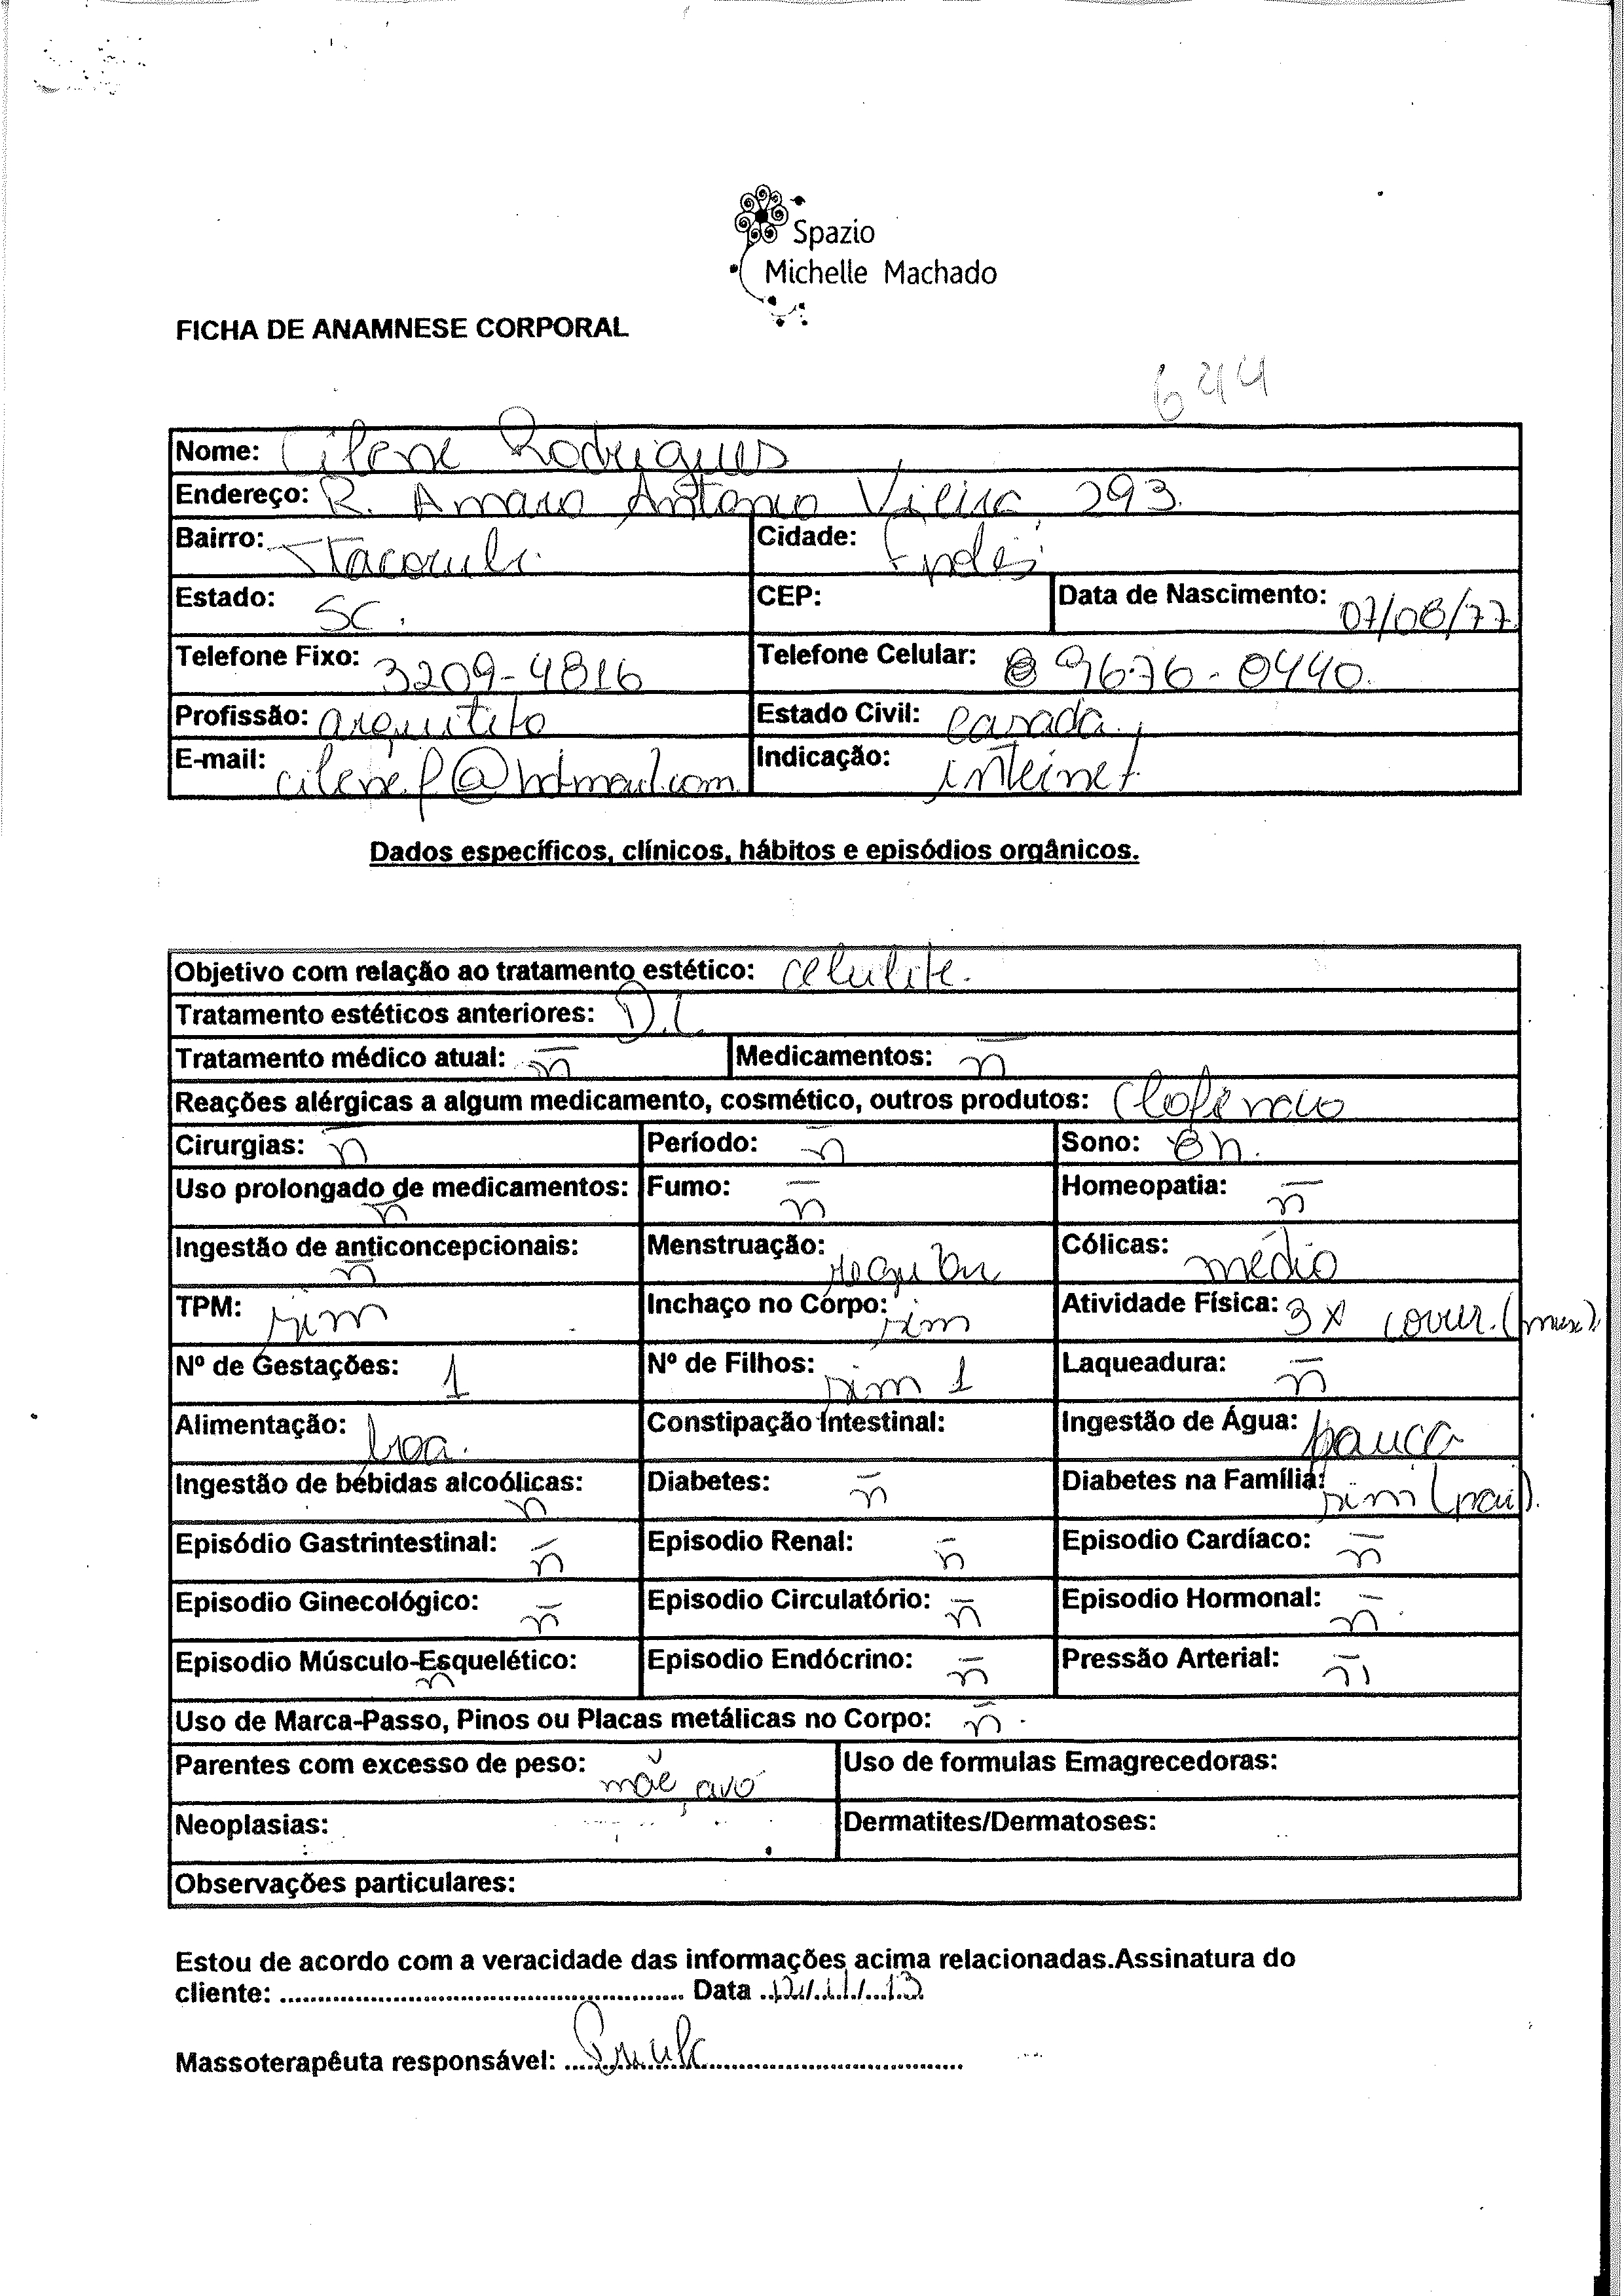 Spazio
Michelle Machado
FICHA DE ANAMNESE CORPORAL
644
Nome: Cilene Rodrigues
Endereço: R. Amaro Antonio Vieira, 293.
Bairro: Itacorubi. Cidade: Fpolis
Estado: SC. CEP: Data de Nascimento: 07/08/77
Telefone Fixo: 3209-4816 Telefone Celular: 9676-0440.
Profissão: arquiteto Estado Civil: casada
E-mail: cilene.f@hotmail.com Indicação: internet
Dados específicos, clínicos, hábitos e episódios orgânicos.
Objetivo com relação ao tratamento estético: celulite.
Tratamento estéticos anteriores: D.L
Tratamento médico atual: ñ Medicamentos: ñ
Reações alérgicas a algum medicamento, cosmético, outros produtos:
Cirurgias: ñ Período: ñ Sono: 8h.
Uso prolongado de medicamentos: ñ Fumo: ñ Homeopatia: ñ
Ingestão de anticoncepcionais: ñ Menstruação: regular Cólicas: médio
TPM: sim Inchaço no Corpo: sim Atividade Física: 3x correr.
Nº de Gestações: 1 Nº de Filhos: sim 1 Laqueadura: ñ
Alimentação: boa. Constipação Intestinal: Ingestão de Água: pouca
Ingestão de bebidas alcoólicas: ñ Diabetes: ñ Diabetes na Família: sim (pai).
Episódio Gastrintestinal: ñ Episodio Renal: ñ Episodio Cardíaco: ñ
Episodio Ginecológico: ñ Episodio Circulatório: ñ Episodio Hormonal: ñ
Episodio Músculo-Esquelético: ñ Episodio Endócrino: ñ Pressão Arterial: ñ
Uso de Marca-Passo, Pinos ou Placas metálicas no Corpo: ñ
Parentes com excesso de peso: mãe, avó Uso de formulas Emagrecedoras:
Neoplasias: Dermatites/Dermatoses:
Observações particulares:
Estou de acordo com a veracidade das informações acima relacionadas.Assinatura do
cliente: .................................................... Data 12/11/13
Massoterapêuta responsável: ....................................................